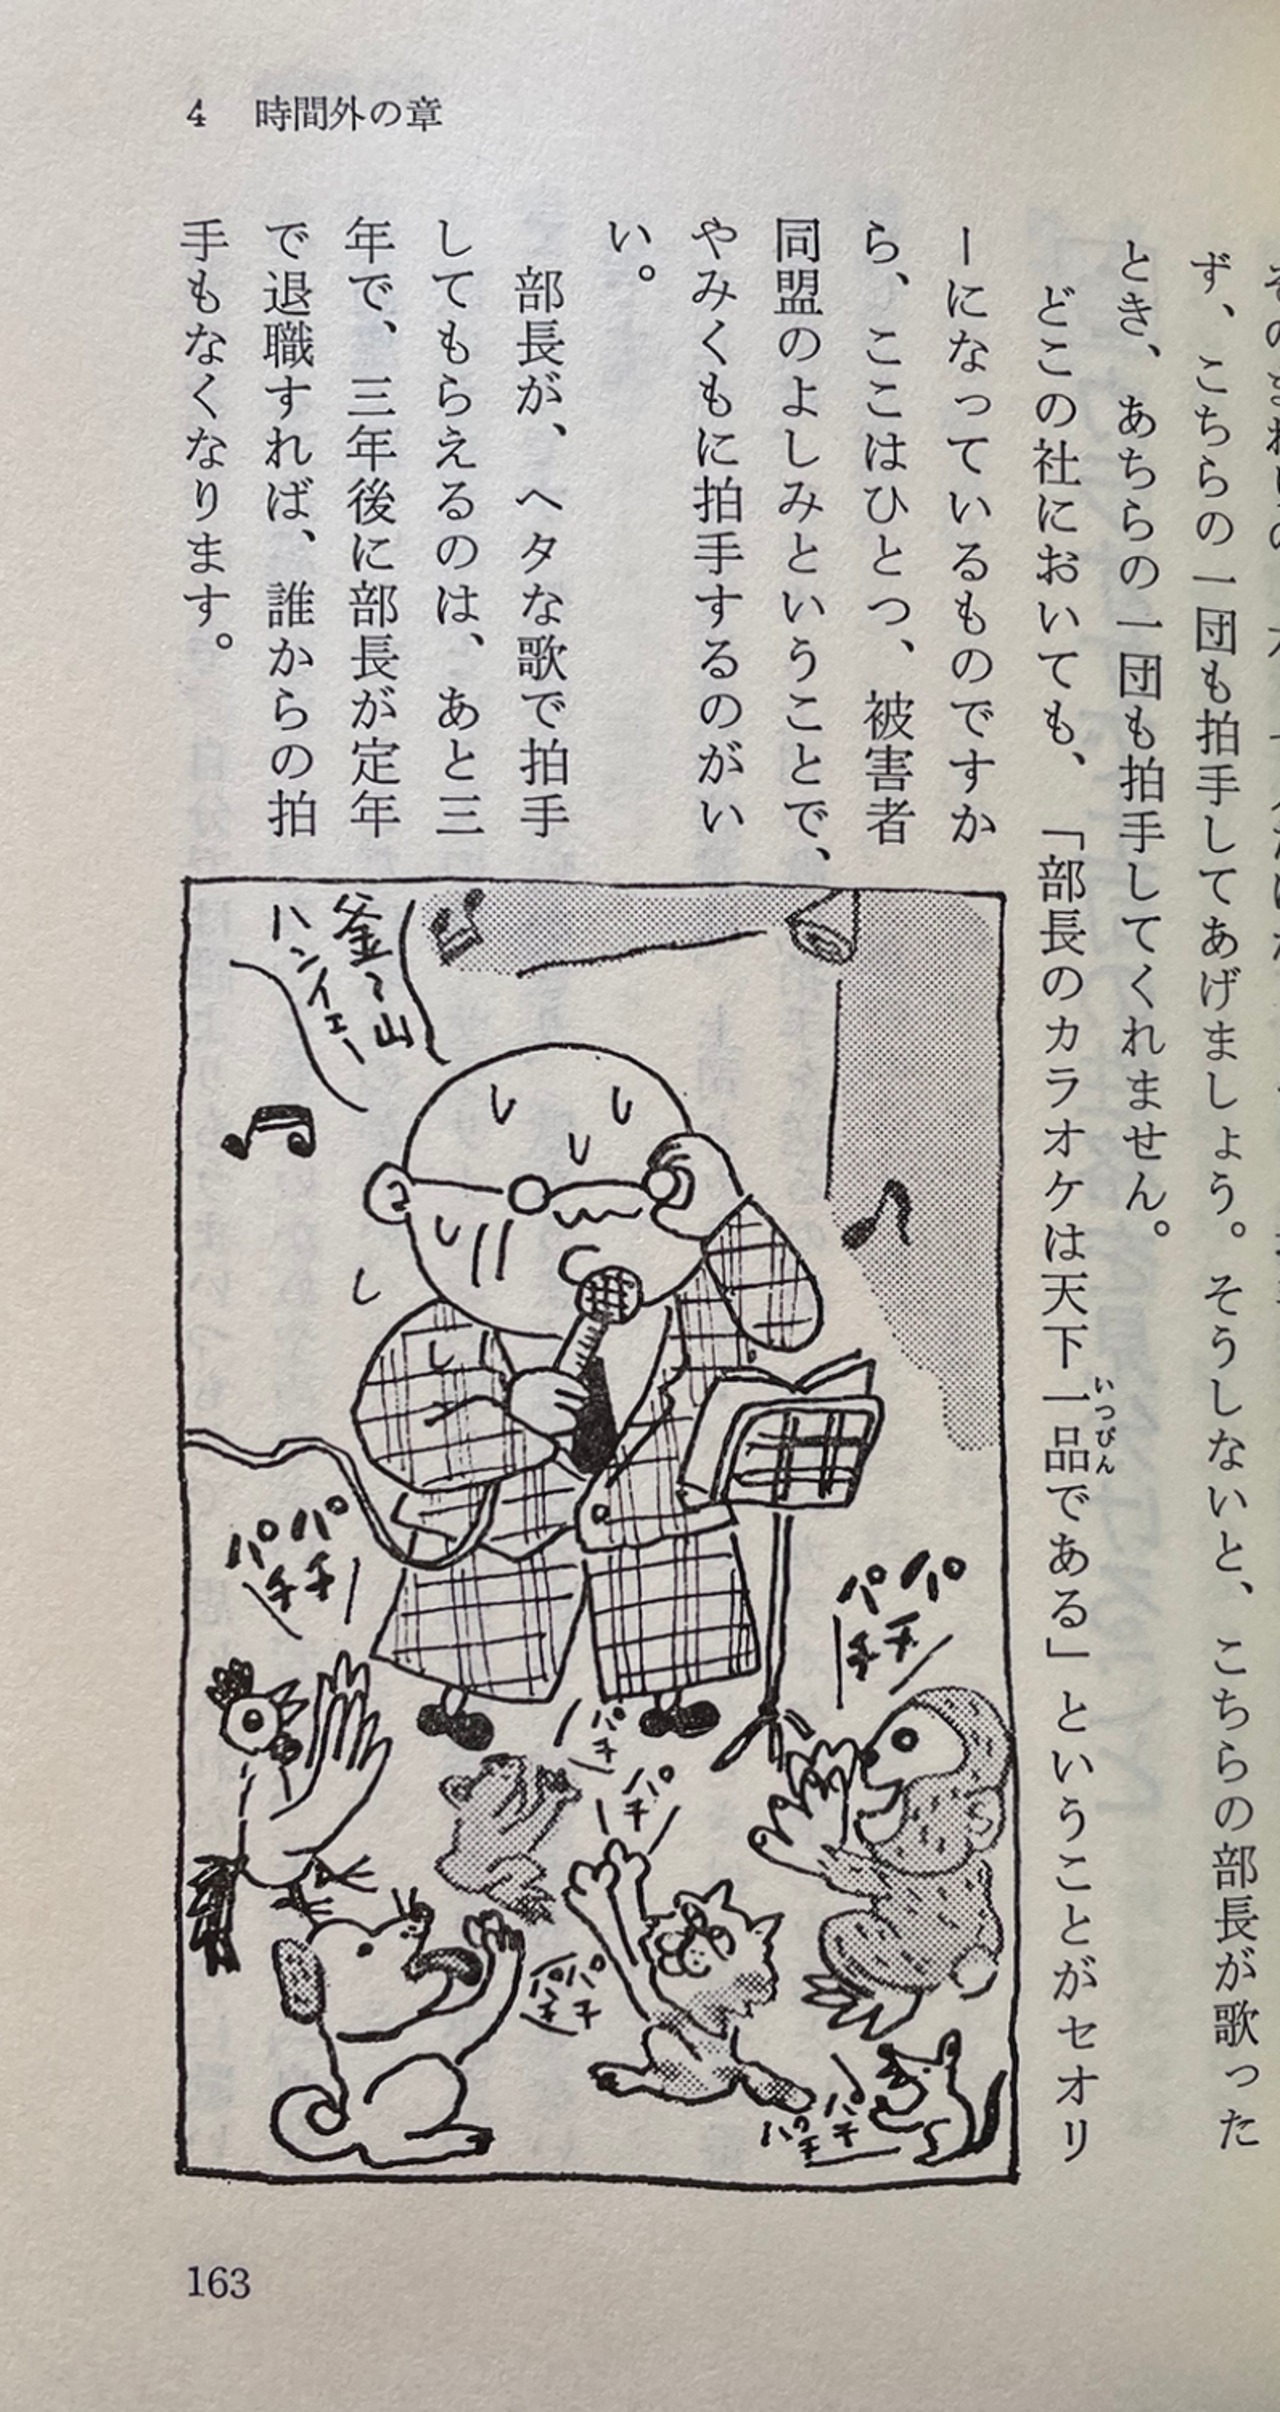 4　時間外の章
ず、こちらの一団も拍手してあげましょう。そうしないと、こちらの部長が歌った
とき、あちらの一団も拍手してくれません。
どこの社においても、「部長のカラオケは天下一品である」ということがセオリ
いっぴん
ーになっているものですか
ら、ここはひとつ、被害者
同盟のよしみということで、
やみくもに拍手するのがい
い。
部長が、ヘタな歌で拍手
してもらえるのは、あと三
年で、三年後に部長が定年
で退職すれば、誰からの拍
手もなくなります。
釜〜山
ハンイェー
パチパチ
パチパチ
パチ
パチ
パチパチ
パチパチ
163